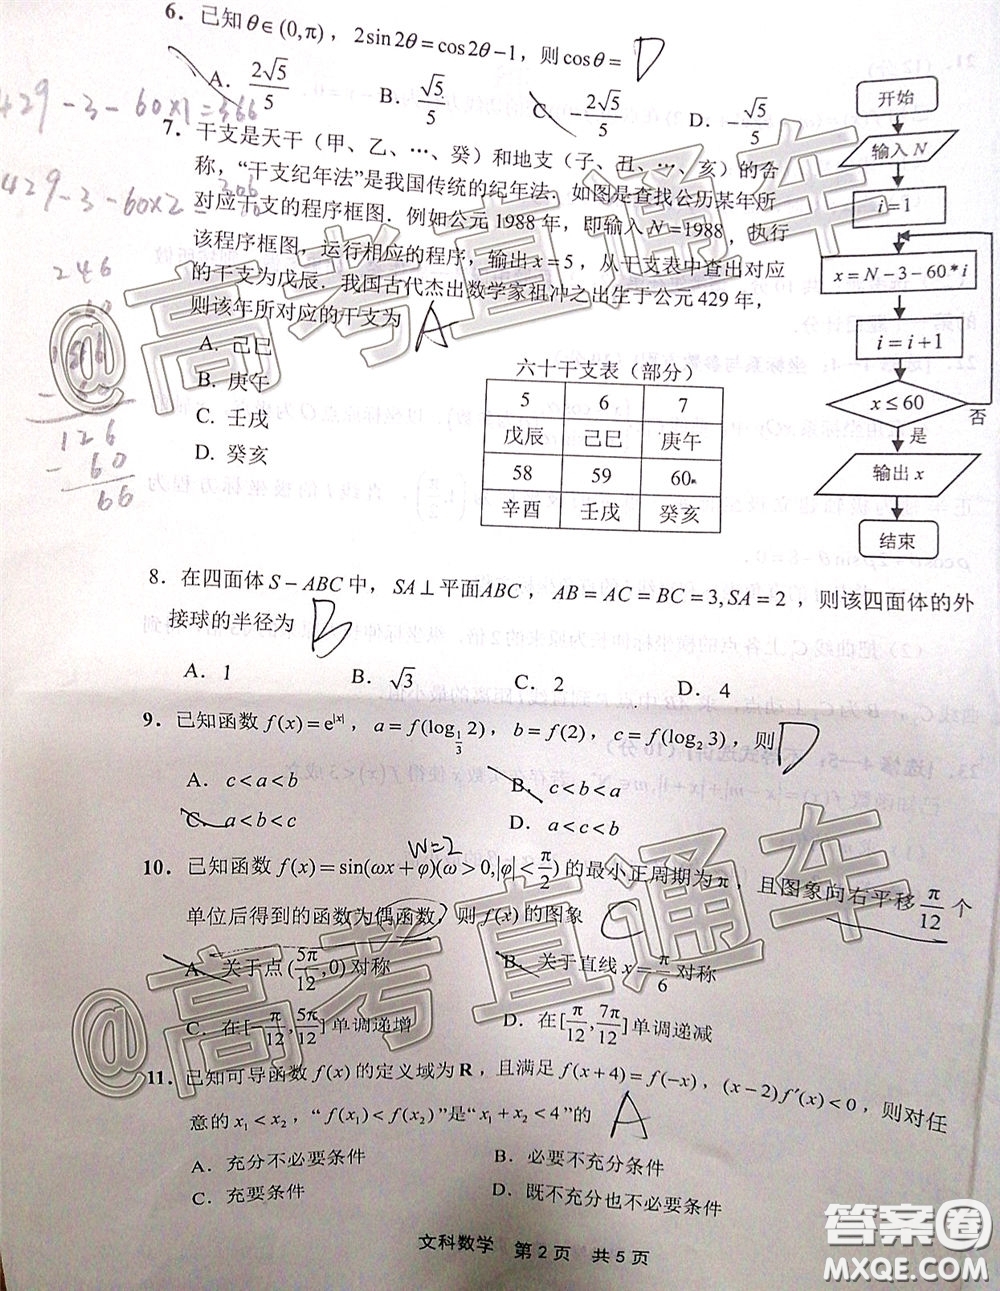 6．已知θ∈(0,π)，2sin2θ=cos2θ−1，则cosθ= D
A．2√5/5 B．√5/5 C．−2√5/5 D．−√5/5
429−3−60×1=366
7．干支是天干（甲、乙、…、癸）和地支（子、丑、…、亥）的合
称，“干支纪年法”是我国传统的纪年法．如图是查找公历某年所
429−3−60×2=306
对应干支的程序框图．例如公元1988年，即输入N=1988，执行
该程序框图，运行相应的程序，输出x=5，从干支表中查出对应
的干支为戊辰．我国古代杰出数学家祖冲之出生于公元429年，
则该年所对应的干支为 A
A．己巳
B．庚午
C．壬戌
D．癸亥
246
60
126
−60
66
六十干支表（部分）
5 6 7
戊辰 己巳 庚午
58 59 60
辛酉 壬戌 癸亥
开始
输入N
i=1
x=N−3−60*i
i=i+1
x≤60
否
是
输出x
结束
8．在四面体S−ABC中，SA⊥平面ABC，AB=AC=BC=3,SA=2，则该四面体的外
接球的半径为 B
A．1 B．√3 C．2 D．4
9．已知函数f(x)=e^|x|，a=f(log_{1/3}2)，b=f(2)，c=f(log_2 3)，则 D
A．c<a<b B．c<b<a
C．a<b<c D．a<c<b
w=2
10．已知函数f(x)=sin(ωx+φ)(ω>0,|φ|<π/2)的最小正周期为π，且图象向右平移π/12个
单位后得到的函数为偶函数，则f(x)的图象 C
A．关于点(5π/12,0)对称 B．关于直线x=−π/6对称
C．在[−π/12,5π/12]单调递增 D．在[π/12,7π/12]单调递减
11．已知可导函数f(x)的定义域为R，且满足f(x+4)=f(−x)，(x−2)f′(x)<0，则对任
意的x₁<x₂，“f(x₁)<f(x₂)”是“x₁+x₂<4”的 A
A．充分不必要条件 B．必要不充分条件
C．充要条件 D．既不充分也不必要条件
文科数学 第2页 共5页
@高考直通车
@高考直通车
答案卷
MXQE.COM